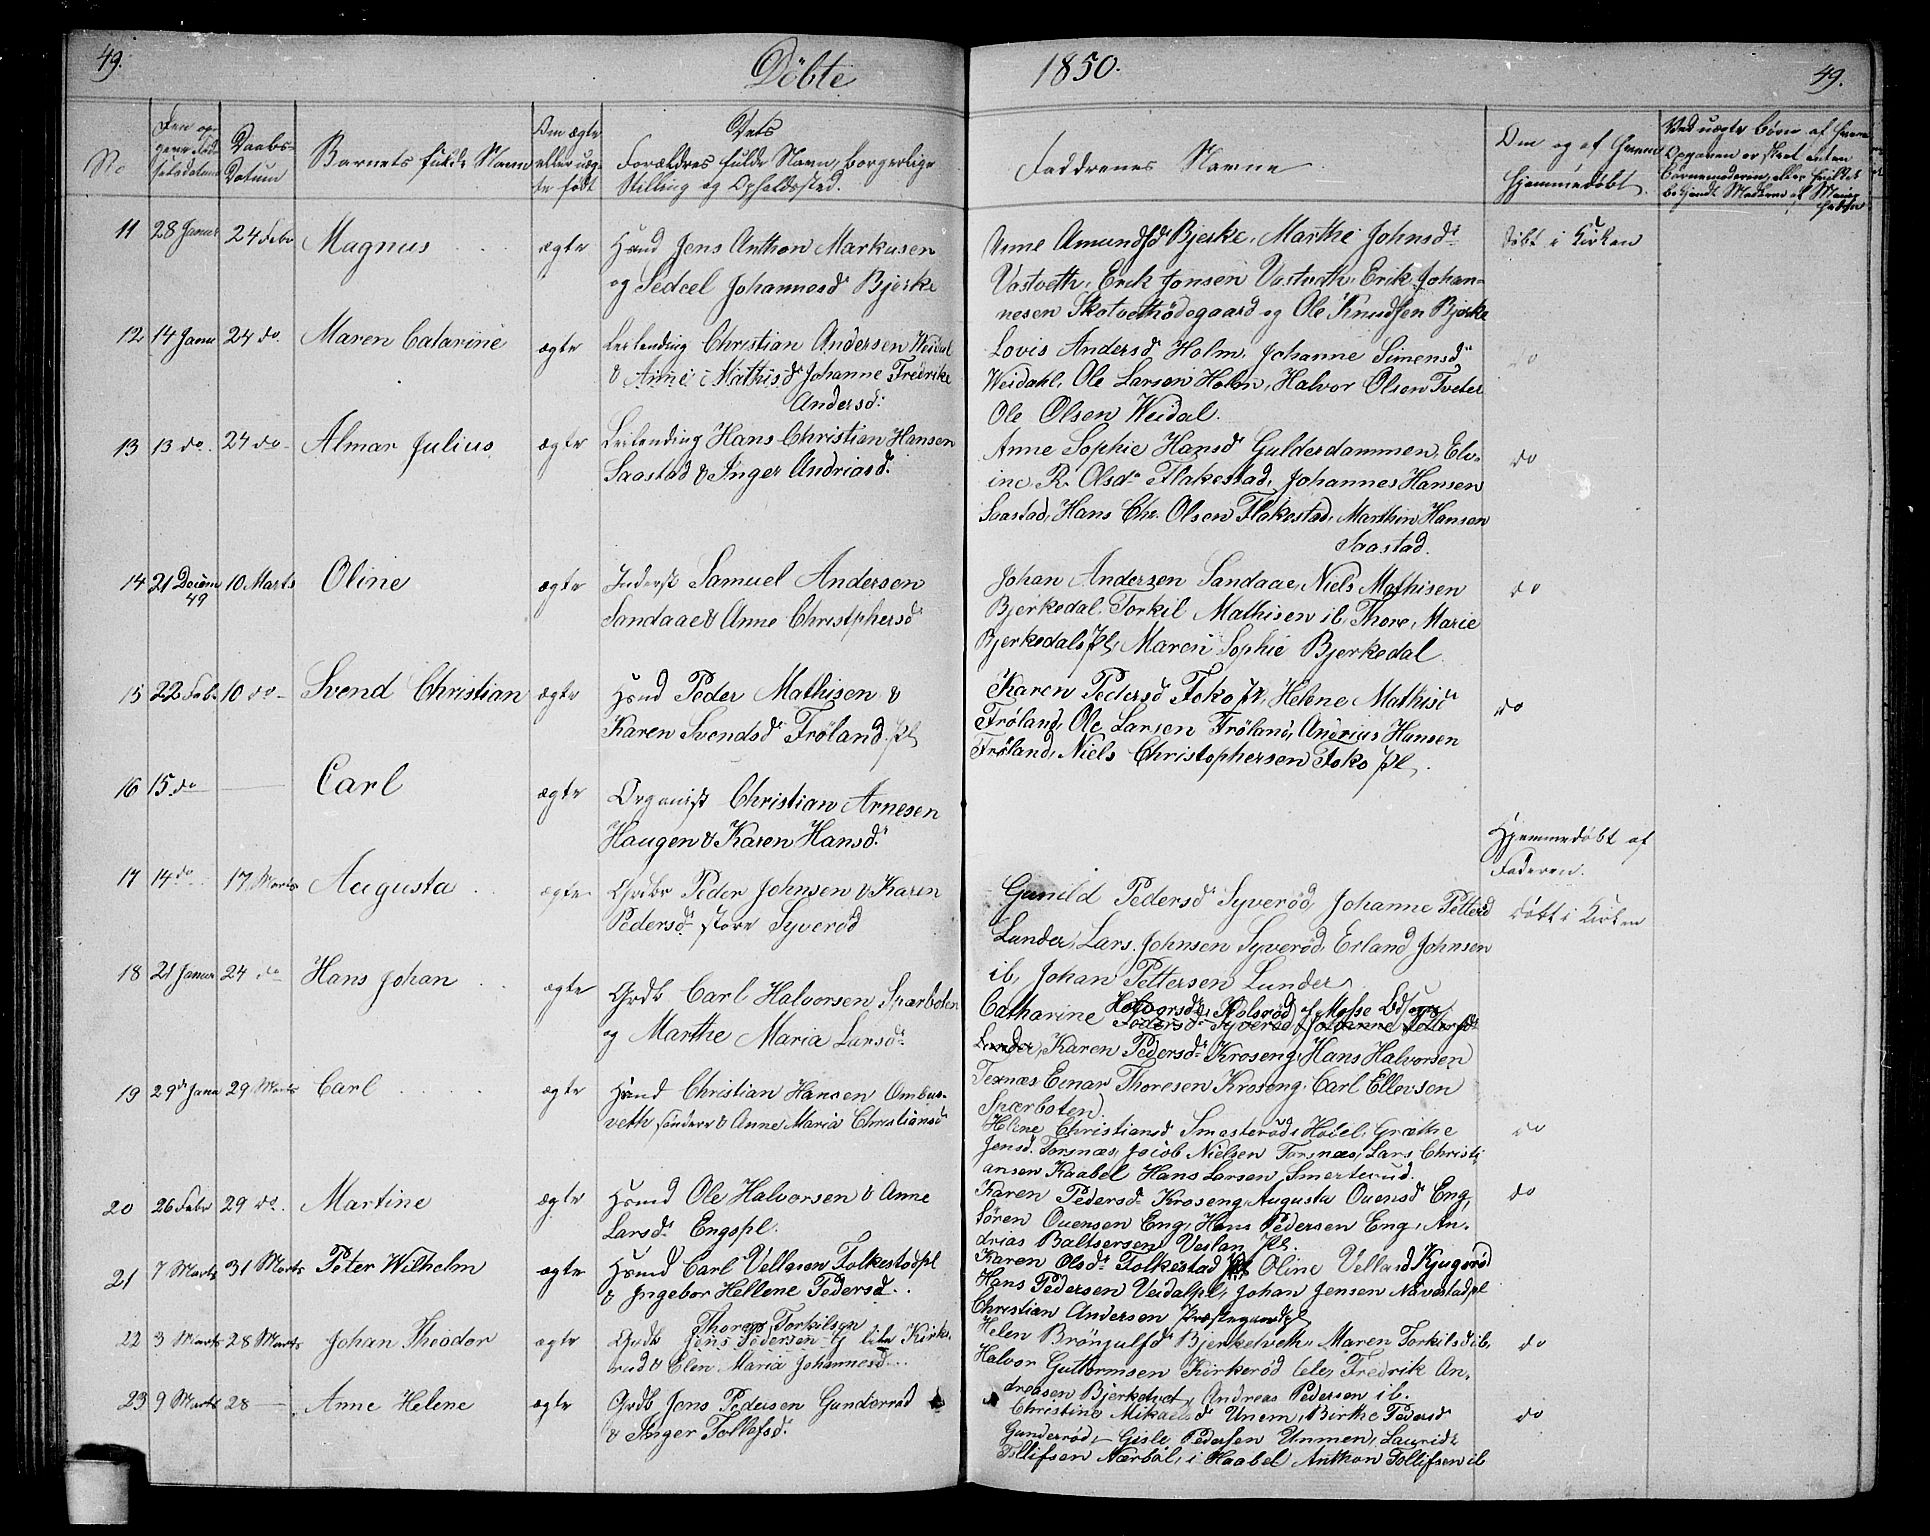 49.
Döbte
1850.
49.
No
Daabs-
Datum
Barnets fulde Navn
Om ægte
eller uæg-
te født
Dets
Forældres fulde Navn, borgerlige
Stilling og Opholdssted.
Faddrenes Navne
Om og af hvem
hjemmedöbt.
11
28 Januar
24 Febr
Magnus
ægte
Hsmd Jens Anthon Markusen
og Sedcel Johannesd Bjerke
Amundsd Bjerke, Marthe Johnsd
Vastveth, Erik Jonsen Vastveth, Erik Johan-
nesen Skotvethödegaard og Ole Knudsen Bjerke
Döbt i Kirken
12
14 Janu
24 do
Maren Catarine
ægte
Leilending Christian Andersen Weidal
& Anne Mathisd Johanne Fredrike
Andersd:
Lovis Andersd Holm, Johanne Simensd
Weidahl, Ole Larsen Holm, Halvor Olsen Tveter
Ole Olsen Weidal.
do
13
13 do
24 do
Almar Julius
ægte
Leilending Hans Christian Hansen
Saastad & Inger Andriasd.
Anne Sophie Hansd Guldersdammen, Elv-
ine R. Olsd Flakestad, Johannes Hansen
Saastad, Hans Chr. Olsen Flakestad, Marthin Hansen
Saastad.
do
14
21 Decem
49
10 Marts
Oline
ægte
Inderst Samuel Andersen
Sandaae & Anne Christphersd
Johan Andersen Sandaae, Niels Mathisen
Bjerkedal Torkil Mathisen ib, Thore, Marie
Bjerkedalspl, Maren Sophie Bjerkedal
do
15
22 Feb
10 do
Svend Christian
ægte
Hsmd Peder Mathisen &
Karen Svendsd Fröland pl
Karen Pedersd Foko pl, Helene Mathisd
Fröland, Ole Larsen Fröland, Andrius Hansen
Fröland, Niels Christophersen Foko pl.
do
16
15 do
Carl
ægte
Organist Christian Arnesen
Haugen & Karen Hansd.
Hjemmedöbt af
Faderen.
17
14 do
17 Marts
Augusta
ægte
Grdbr Peder Johnsen & Karen
Pedersd store Syveröd
Gunild Pedersd Syveröd, Johanne Petters
Lunder, Lars Johnsen Syveröd, Erland Johnsen
ib, Johan Pettersen Lunder.
Döbt i Kirken
18
21 Januar
24 do
Hans Johan
ægte
Grdb Carl Halvorsen Spærboten
og Marthe Maria Larsd
Catharine Halvorsd
Lunder, Karen Pedersd Kroseng, Hans Halvorsen
Texnæs Einar Thoresen Kroseng, Carl Ellevsen
Spærboten.
19
29de Janu
29 Marts
Carl
ægte
Hsmd Christian Hansen Ombus-
veth söndere & Anne Maria Christiansd
Helene Christiansd Smesteröd, Hötel, Græthe
Jensd Torsnæs, Jacob Nielsen Torsnæs, Lars Christi
ansen Kaabel Hans Larsen Smerterud.
do
20
26 Febr
29 do.
Martine
ægte
Hsmd Ole Halvorsen & Anne
Larsd Engspl.
Karen Pedersd Kroseng, Augusta Ouensd Eng,
Sören Ouensen Eng, Hans Pedersen Eng, An-
drias Baltsersen Veslan pl.
do
21
7 Marts
31 Marts
Peter Wilhelm
ægte
Hsmd Carl Vellasen Folkestadpl
& Ingebor Hellene Pedersd.
Karen Olsd Folkestad Oline Vellasd Kjugeröd
Hans Pedersen Veidalpl, Johan Jensen Navestadpl
Christian Andersen Præstegaardpl
22
3 Marts
28 Marts
Johan Theodor
ægte
Thorer Torkilsen
Grdb Jens Pedersen lille Kirke-
rud & Elen Maria Johannesd
Helen Bröngulfsd Bjerketveth, Maren Torkilsd ib,
Halvor Guttormsen Kirkeröd lele, Fredrik An-
dreasen Bjerketvet, Andreas Pedersen ib.
do
23
9 Marts
28
Anne Helene
ægte
Grdb Jens Pedersen Gunderröd
& Inger Tollefsd.
Christine Mikaelsd Unem, Birthe Pedersd
Gunderröd, Gisle Pedersen Unmen, Laurids
Tollifsen Nærböl, i Haabel Anthon Tollifsen ib
do